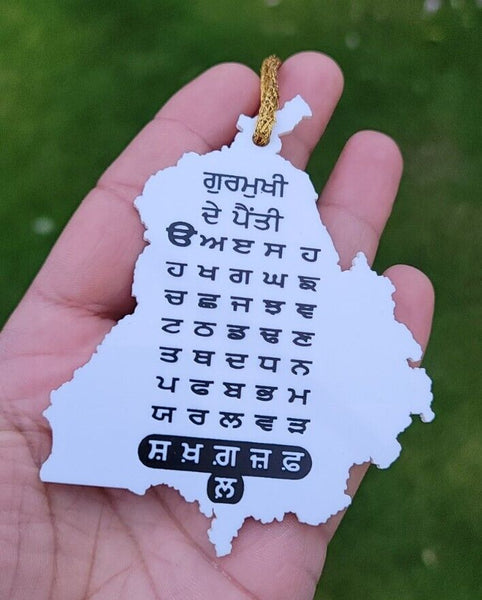 ਗੁਰਮੁਖੀ
ਦੇ ਪੈਂਤੀ
ੳ ਅ ੲ ਸ ਹ
ਹ ਖ ਗ ਘ ਙ
ਚ ਛ ਜ ਝ ਞ
ਟ ਠ ਡ ਢ ਣ
ਤ ਥ ਦ ਧ ਨ
ਪ ਫ ਬ ਭ ਮ
ਯ ਰ ਲ ਵ ੜ
ਸ਼ ਖ਼ ਗ਼ ਜ਼ ਫ਼
ਲ਼